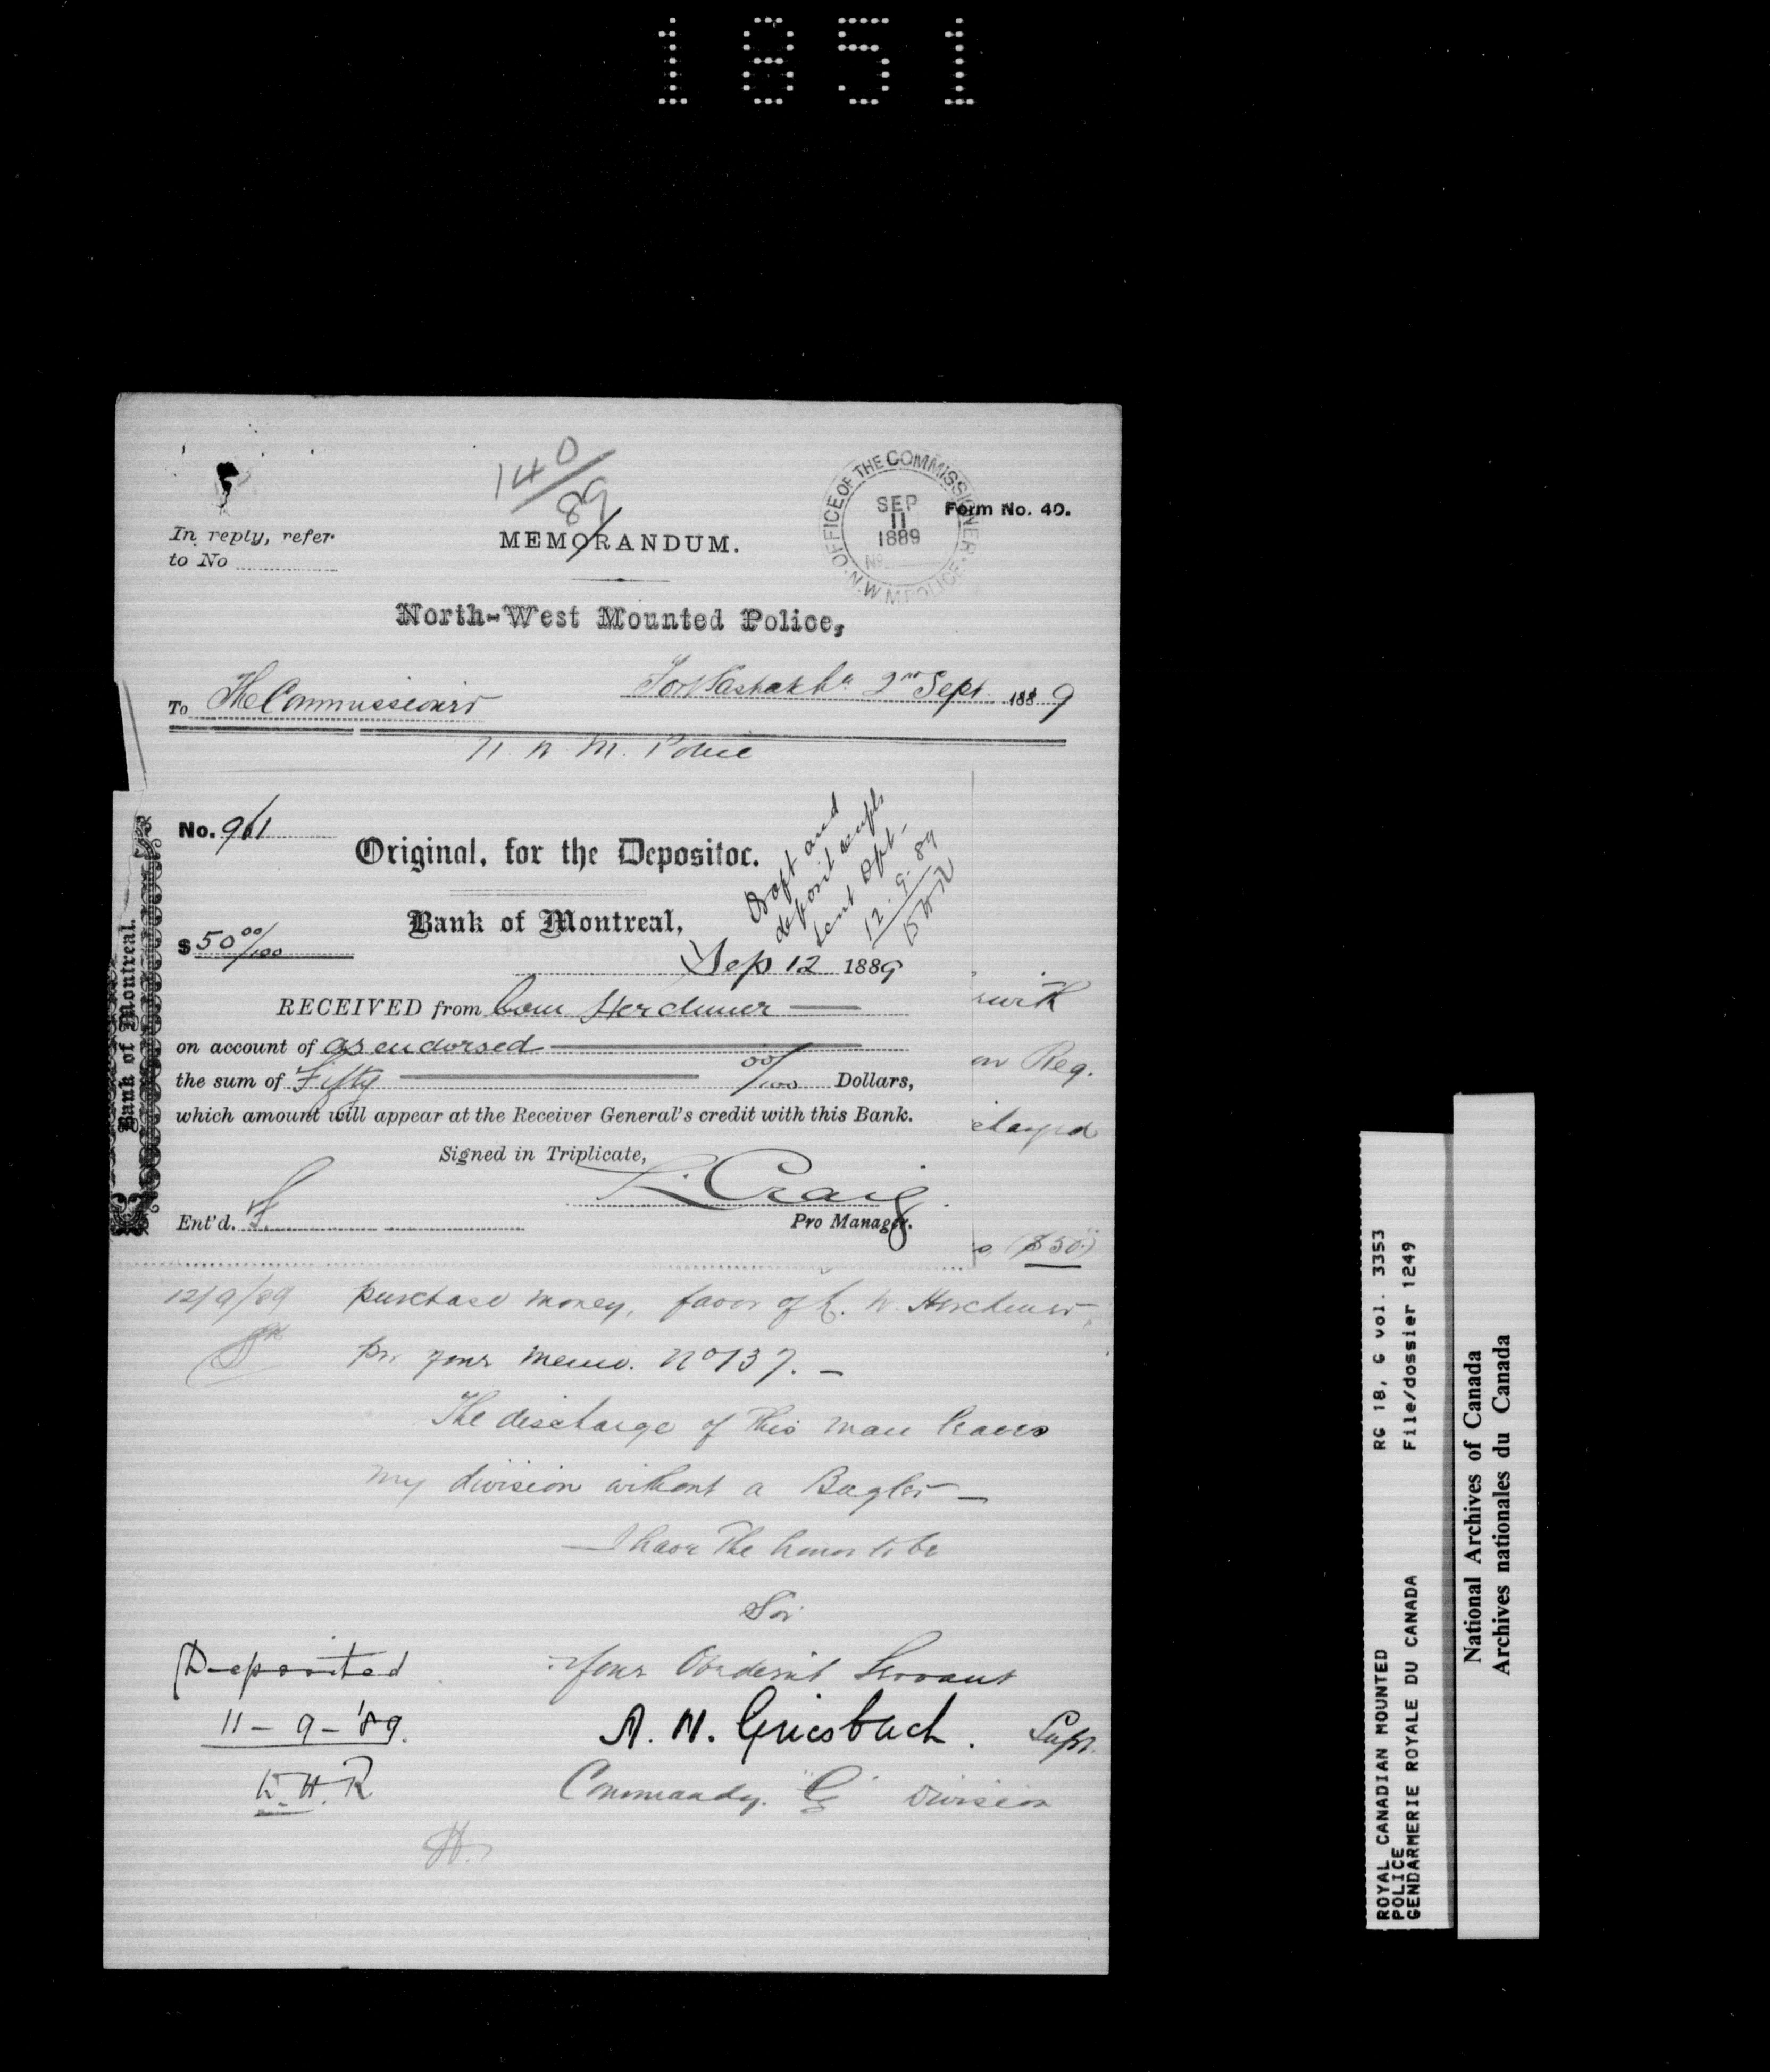 1851
140/89
OFFICE OF THE COMMISSIONER
SEP
11
1889
No
N.W.M. POLICE
Form No. 40.
In reply, refer
to No
MEMORANDUM.
North-West Mounted Police,
2nd Sept. 1889
To The Commissioner
N. W. M. Police
No. 961
Original, for the Depositor.
Draft and
deposit
sent Dpt-
12.9.89
$ 50 00/100
Bank of Montreal,
Sep 12 1889
RECEIVED from Com Herchmer
on account of as endorsed
the sum of Fifty 00/100 Dollars,
which amount will appear at the Receiver General's credit with this Bank.
Signed in Triplicate,
L. Craig
Ent'd. Pro Manager.
Bank of Montreal.
Reg.
($50.)
12/9/89 purchase money, favor of L. W. Herchmer,
per your memo. No 137. –
The discharge of this man leaves
my division without a Bugler –
I have the honor to be
Sir
Your Obedient Servant
Deposited
11 - 9 - '89.
W. H. R.
A. H. Griesbach. Supt.
Commandg. "G" Division
H.
ROYAL CANADIAN MOUNTED
POLICE
GENDARMERIE ROYALE DU CANADA
RG 18, G vol. 3353
File/dossier 1249
National Archives of Canada
Archives nationales du Canada